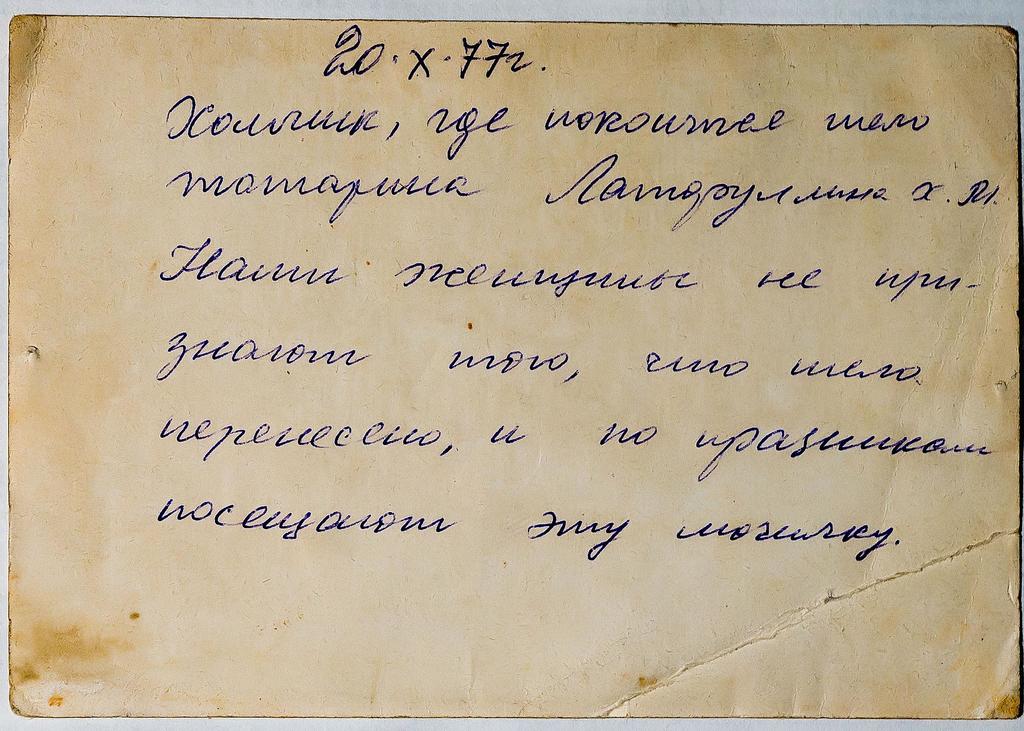 20.X.77г.
Холмик, где покоится тело
татарина Латфуллина Х.
Наши женщины не при-
знают того, что тело
перенесено, и по празникам
посещают эту могилку.